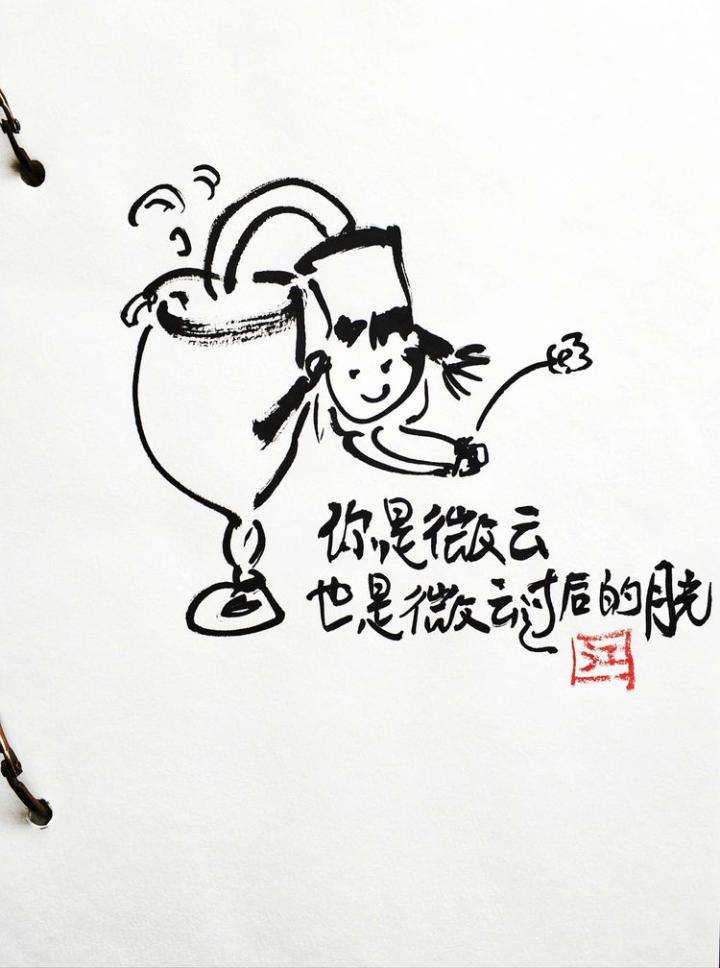 你是微云
也是微云过后的月光